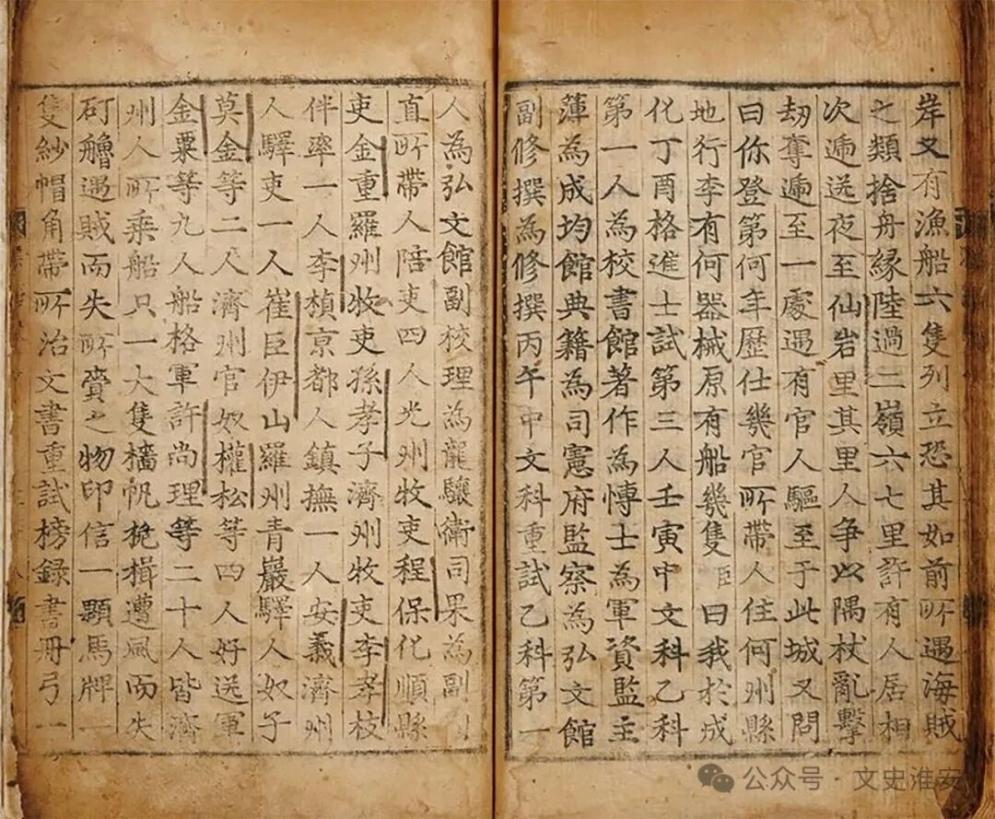 岸又有漁船六隻列立恐其如前所遇海賊
之類捨舟緣陸過二嶺六七里許有人居相
次遞送夜至仙岩里其里人爭以隅杖亂擊
刼奪遞至一處遇有官人驅至于此城又問
曰你登第何年歷仕幾官所帶人住何州縣
地行李有何器械原有船幾隻臣曰我於成
化丁酉格進士試第三人壬寅中文科乙科
第一人為校書館著作為博士為軍資監主
簿為成均館典籍為司憲府監察為弘文館
副修撰為修撰丙午中文科重試乙科第一
人為弘文館副校理為龍驤衛司果為副司
直所帶人陪吏四人光州牧吏程保化順縣
吏金重羅州牧吏孫孝子濟州牧吏李孝枝
伴率一人李楨京都人鎮撫一人安義濟州
人驛吏一人崔巨伊山羅州青巖驛人奴子
莫金等二人濟州官奴權松等四人好送軍
金粟等九人船格軍許尚理等二十人皆濟
州人所乘船只一大隻檣帆桅楫遭風而失
矴艪遇賊而失所賫之物印信一顆馬牌一
隻紗帽角帶所治文書重試榜錄書冊弓一
公众号 · 文史淮安